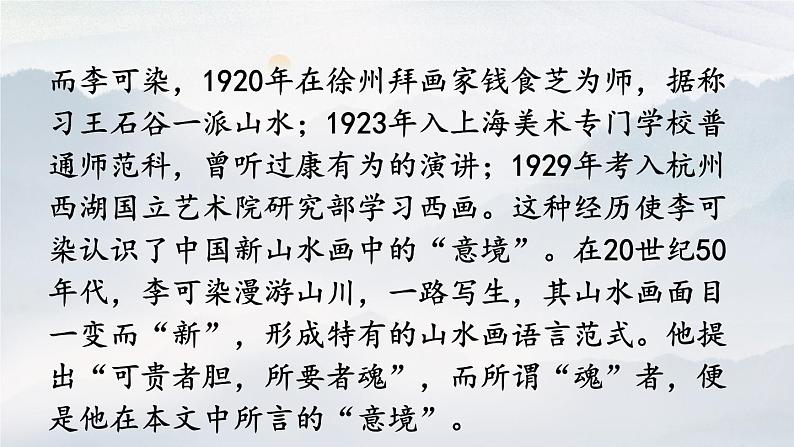 而李可染，1920年在徐州拜画家钱食芝为师，据称
习王石谷一派山水；1923年入上海美术专门学校普
通师范科，曾听过康有为的演讲；1929年考入杭州
西湖国立艺术院研究部学习西画。这种经历使李可
染认识了中国新山水画中的“意境”。在20世纪50
年代，李可染漫游山川，一路写生，其山水画面目
一变而“新”，形成特有的山水画语言范式。他提
出“可贵者胆，所要者魂”，而所谓“魂”者，便
是他在本文中所言的“意境”。